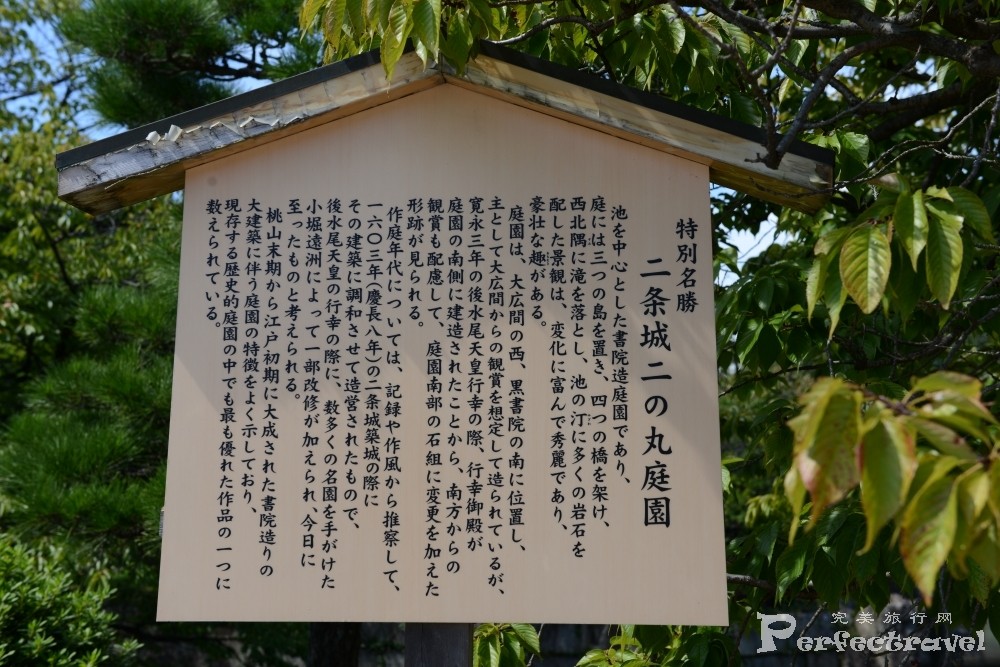 特別名勝
二条城二の丸庭園
池を中心とした書院造庭園であり、
庭には三つの島を置き、四つの橋を架け、
西北隅に滝を落とし、池の汀に多くの岩石を
配した景観は、変化に富んで秀麗であり、
豪壮な趣がある。
庭園は、大広間の西、黒書院の南に位置し、
主として大広間からの観賞を想定して造られているが、
寛永三年の後水尾天皇行幸の際、行幸御殿が
庭園の南側に建造されたことから、南方からの
観賞も配慮して、庭園南部の石組に変更を加えた
形跡が見られる。
作庭年代については、記録や作風から推察して、
一六〇三年(慶長八年)の二条城築城の際に
その建築に調和させて造営されたもので、
後水尾天皇の行幸の際に、数多くの名園を手がけた
小堀遠洲によって一部改修が加えられ、今日に
至ったものと考えられる。
桃山末期から江戸初期に大成された書院造りの
大建築に伴う庭園の特徴をよく示しており、
現存する歴史的庭園の中でも最も優れた作品の一つに
数えられている。
完美旅行网
Perfectravel